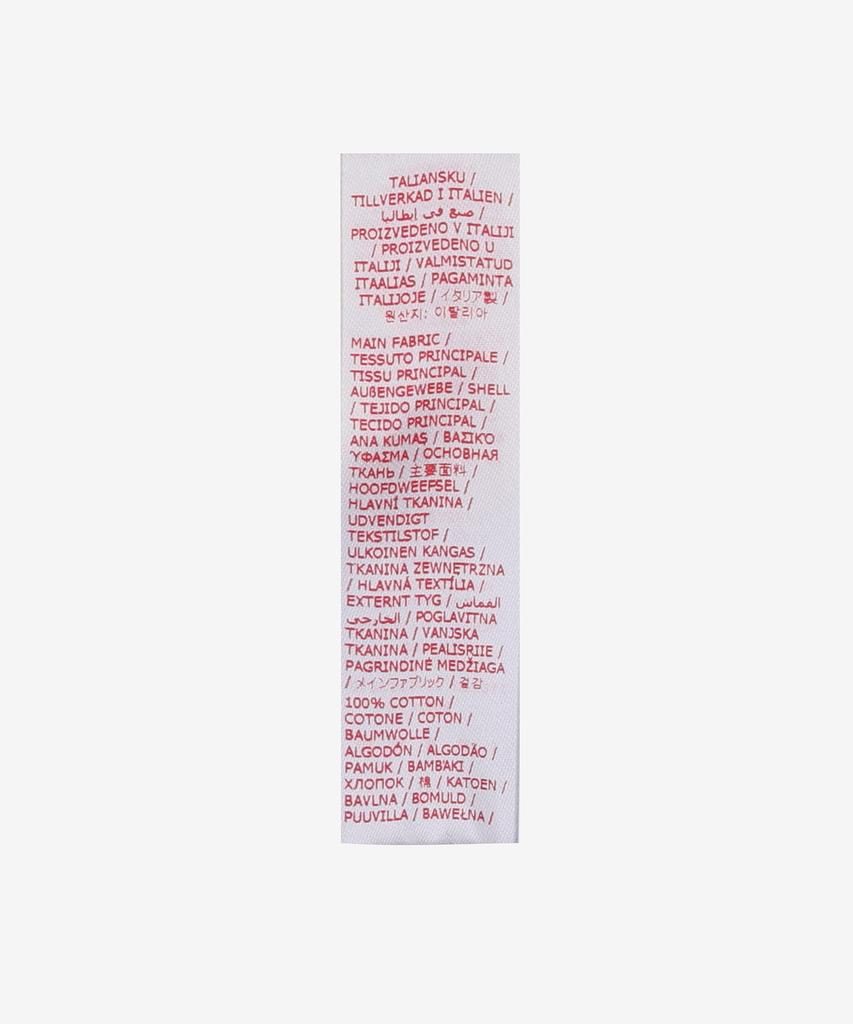 TALIANSKU /
TILLVERKAD I ITALIEN /
صنع في إيطاليا /
PROIZVEDENO V ITALIJI
/ PROIZVEDENO U
ITALIJI / VALMISTATUD
ITAALIAS / PAGAMINTA
ITALIJOJE / イタリア製 /
원산지: 이탈리아
MAIN FABRIC /
TESSUTO PRINCIPALE /
TISSU PRINCIPAL /
AUßENGEWEBE / SHELL
/ TEJIDO PRINCIPAL /
TECIDO PRINCIPAL /
ANA KUMAŞ / ΒΑΣΙΚΌ
ΎΦΑΣΜΑ / ОСНОВНАЯ
ТКАНЬ / 主要面料 /
HOOFDWEEFSEL /
HLAVNÍ TKANINA /
UDVENDIGT
TEKSTILSTOF /
ULKOINEN KANGAS /
TKANINA ZEWNĘTRZNA
/ HLAVNÁ TEXTÍLIA /
EXTERNT TYG / القماس
الخارجي / POGLAVITNA
TKANINA / VANJSKA
TKANINA / PEALISRIIE /
PAGRINDINĖ MEDŽIAGA
/ メインファブリック / 겉감
100% COTTON /
COTONE / COTON /
BAUMWOLLE /
ALGODÓN / ALGODÃO /
PAMUK / ΒΑΜΒΆΚΙ /
ХЛОПОК / 棉 / KATOEN /
BAVLNA / BOMULD /
PUUVILLA / BAWEŁNA /